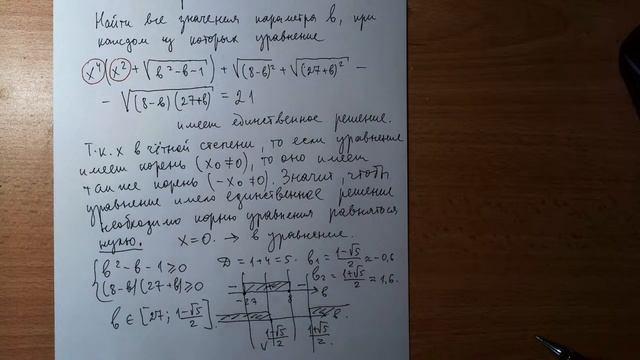 Найти все значения параметра b, при
каждом из которых уравнение
x⁴(x² + √(b²-b-1)) + √(8-b)² + √(27+b)² -
- √((8-b)(27+b)) = 21
имеет единственное решение.
Т.к. x в чётной степени, то если уравнение
имеет корень (x₀≠0), то оно имеет
также корень (-x₀≠0). Значит, чтобы
уравнение имело единственное решение
необходимо корню уравнения равняться
нулю. x=0. → в уравнение.
{ b²-b-1≥0 D=1+4=5. b₁=(1-√5)/2≈-0,6
(8-b)(27+b)≥0 b₂=(1+√5)/2=1,6.
- + -
-27 8 b
b∈[27; (1-√5)/2]. b.
(1-√5)/2 (1+√5)/2.